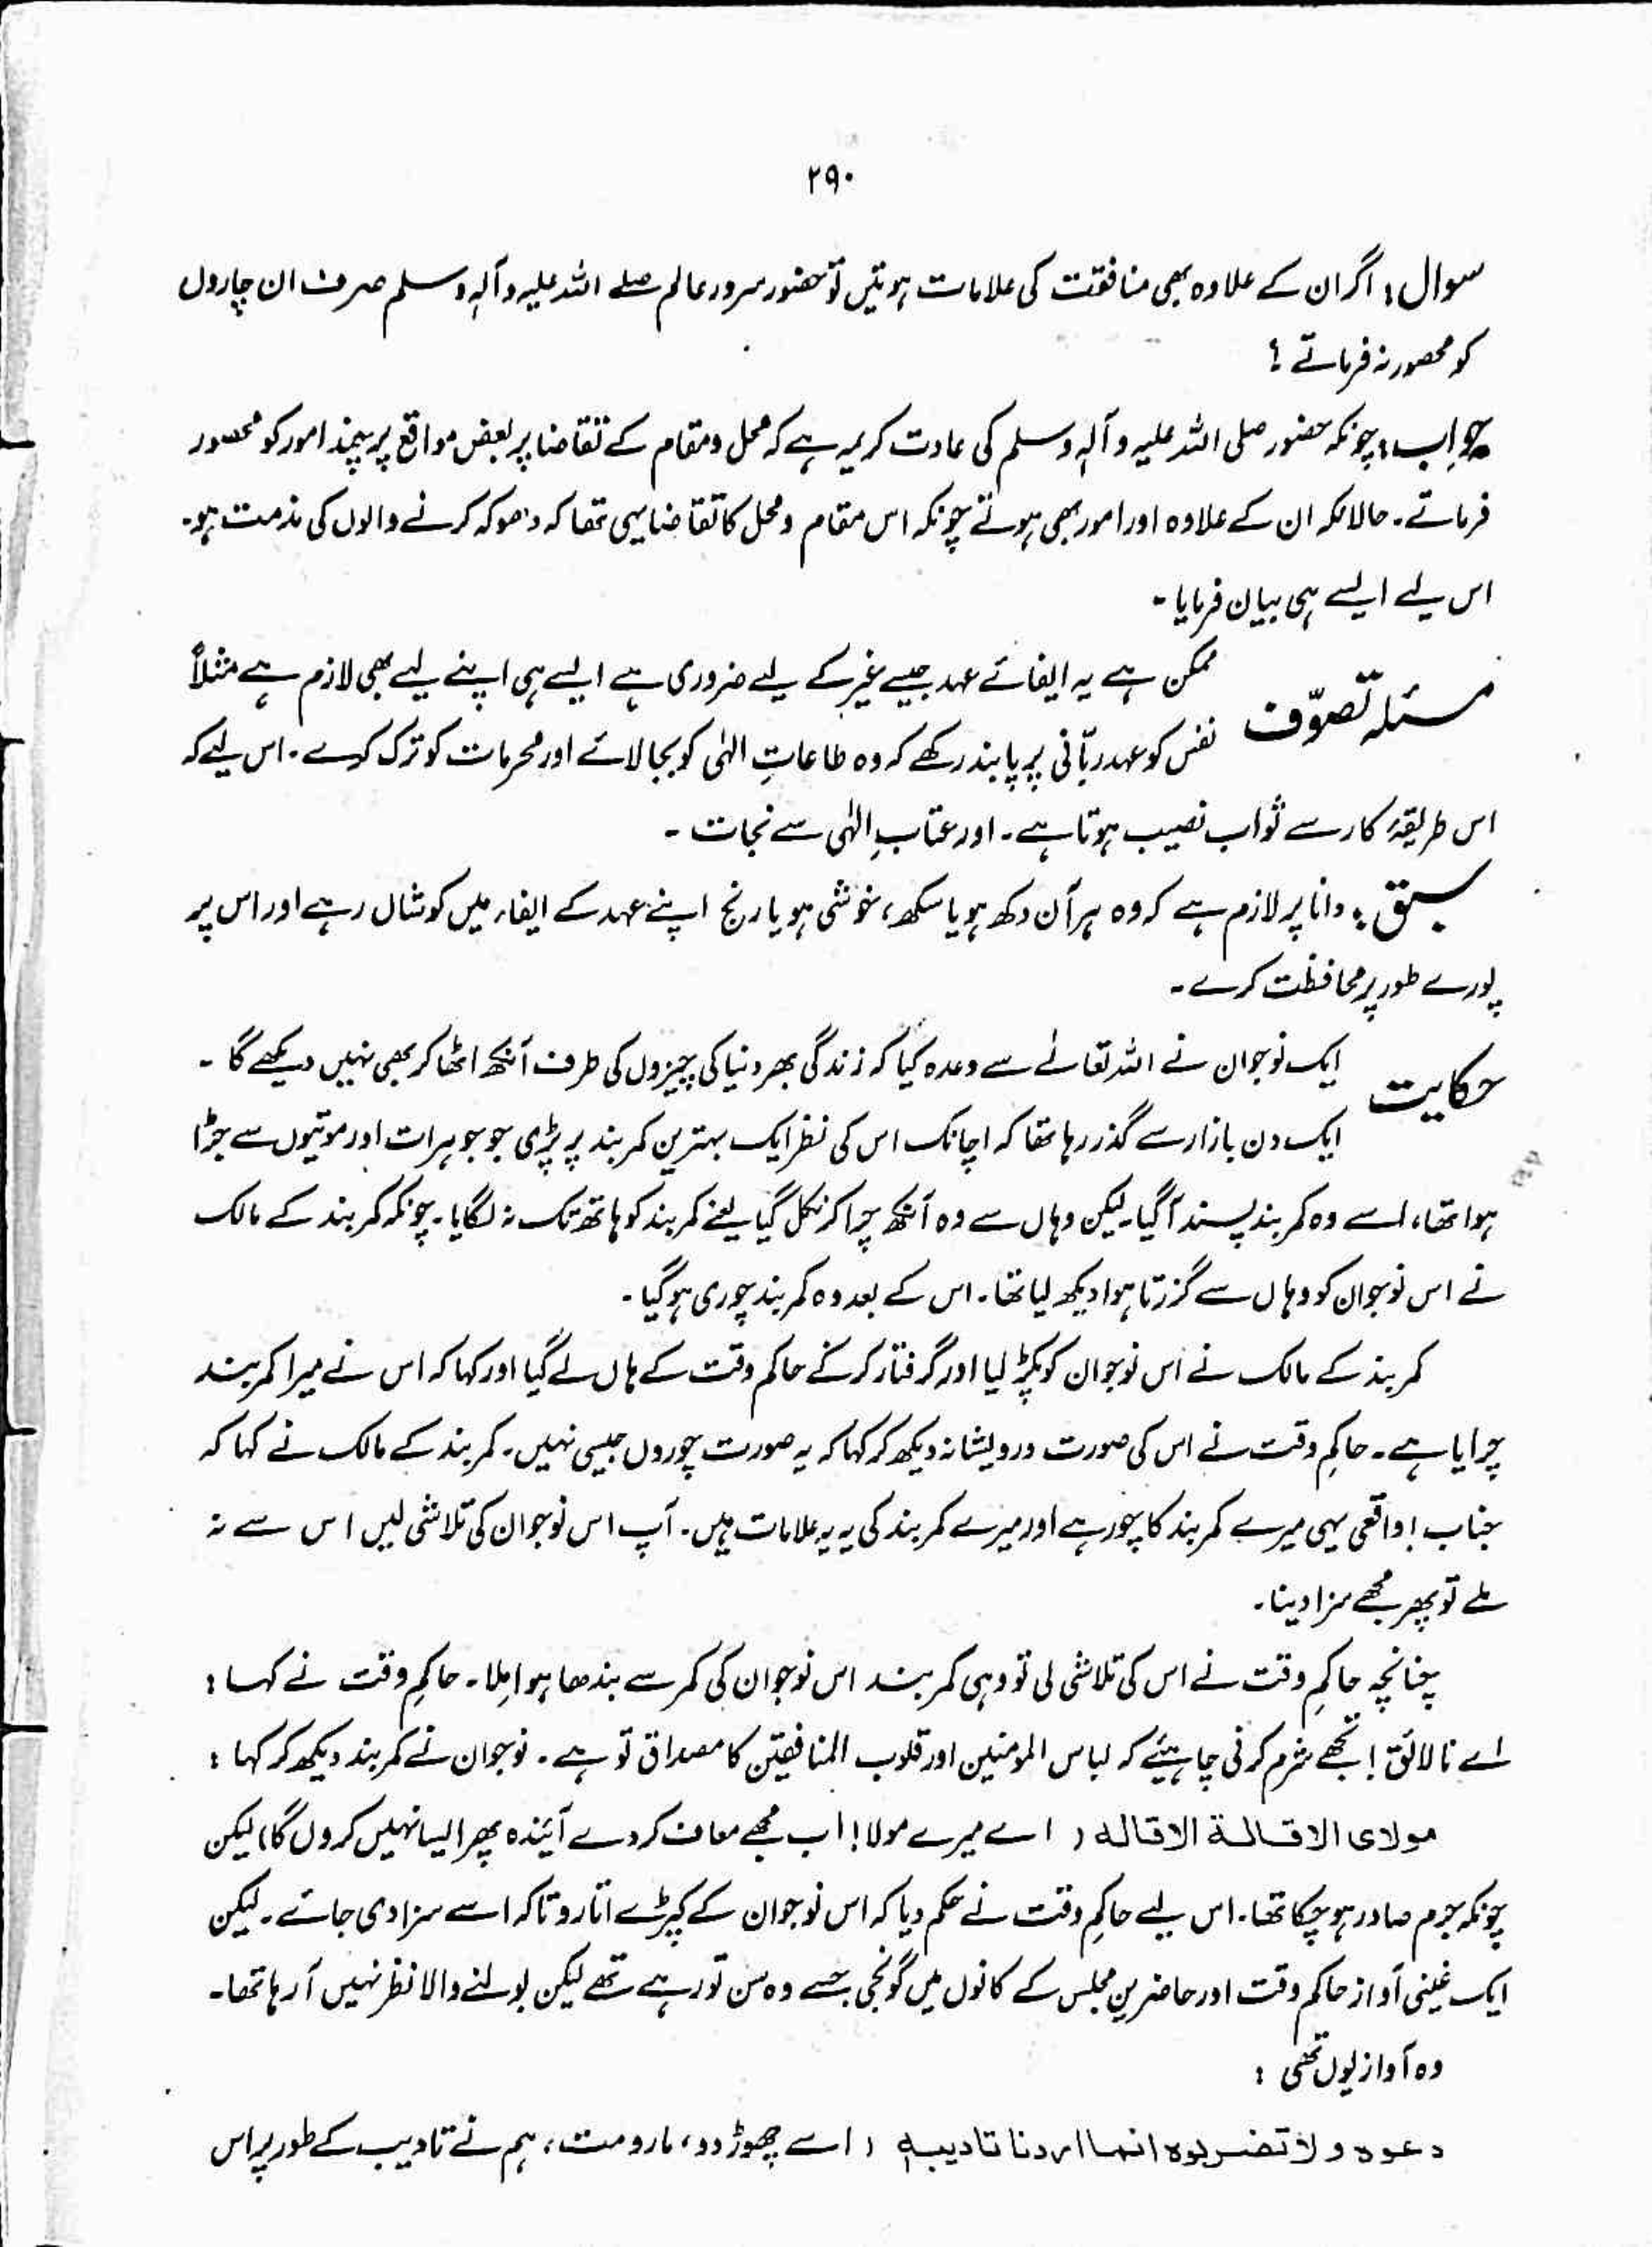 ۲۹۰
سوال: اگر ان کے علاوہ بھی منافقت کی علامات ہوتیں تو حضور سرور عالم صلے اللہ علیہ وآلہٖ وسلم صرف ان چاروں
کو محصور نہ فرماتے ؟
جواب: چونکہ حضور صلی اللہ علیہ وآلہٖ وسلم کی عادت کریمہ ہے کہ محل و مقام کے تقاضا پر بعض مواقع پر چند امور کو محصور
فرماتے۔ حالانکہ ان کے علاوہ اور امور بھی ہوتے چونکہ اس مقام و محل کا تقاضا یہی تھا کہ دھوکہ کرنے والوں کی مذمت ہو۔
اس لیے ایسے ہی بیان فرمایا۔
مسئلہ تصوّف ممکن ہے یہ ایفائے عہد جیسے غیر کے لیے ضروری ہے ایسے ہی اپنے لیے بھی لازم ہے مثلاً
نفس کو عہد ربّانی پر پابند رکھے کہ وہ طاعاتِ الٰہی کو بجا لائے اور محرمات کو ترک کرے۔ اس لیے کہ
اس طریقۂ کار سے ثواب نصیب ہوتا ہے۔ اور عتابِ الٰہی سے نجات ۔
سبق: دانا پر لازم ہے کہ وہ ہر آن دکھ ہو یا سکھ، خوشی ہو یا رنج اپنے عہد کے ایفاء میں کوشاں رہے اور اس پر
پورے طور پر محافظت کرے۔
حکایت ایک نوجوان نے اللہ تعالےٰ سے وعدہ کیا کہ زندگی بھر دنیا کی چیزوں کی طرف آنکھ اٹھا کر بھی نہیں دیکھے گا ۔
ایک دن بازار سے گذر رہا تھا کہ اچانک اس کی نظر ایک بہترین کمر بند پر پڑی جو جوہرات اور موتیوں سے جڑا
ہوا تھا، اسے وہ کمر بند پسند آ گیا۔ لیکن وہاں سے وہ آنکھ چرا کر نکل گیا یعنے کمر بند کو ہاتھ تک نہ لگایا۔ چونکہ کمر بند کے مالک
نے اس نوجوان کو وہاں سے گزرتا ہوا دیکھ لیا تھا۔ اس کے بعد وہ کمر بند چوری ہو گیا ۔
کمر بند کے مالک نے اس نوجوان کو پکڑ لیا اور گرفتار کر کے حاکم وقت کے ہاں لے گیا اور کہا کہ اس نے میرا کمر بند
چرایا ہے۔ حاکمِ وقت نے اس کی صورت درویشانہ دیکھ کر کہا کہ یہ صورت چوروں جیسی نہیں۔ کمر بند کے مالک نے کہا کہ
جناب! واقعی یہی میرے کمر بند کا چور ہے اور میرے کمر بند کی یہ یہ علامات ہیں۔ آپ اس نوجوان کی تلاشی لیں اس سے نہ
ملے تو پھر مجھے سزا دینا۔
چنانچہ حاکمِ وقت نے اس کی تلاشی لی تو وہی کمر بند اس نوجوان کی کمر سے بندھا ہوا ملا۔ حاکمِ وقت نے کہا :
اے نالائق! تجھے شرم کرنی چاہیئے کہ لباس المومنین اور قلوب المنافقین کا مصداق تو ہے۔ نوجوان نے کمر بند دیکھ کر کہا :
مولای الاقالة الاقاله ( اے میرے مولا! اب مجھے معاف کر دے آئندہ پھر ایسا نہیں کروں گا) لیکن
چونکہ جرم صادر ہو چکا تھا۔ اس لیے حاکمِ وقت نے حکم دیا کہ اس نوجوان کے کپڑے اتارو تاکہ اسے سزا دی جائے۔ لیکن
ایک غیبی آواز حاکم وقت اور حاضرینِ مجلس کے کانوں میں گونجی جسے وہ سن تو رہے تھے لیکن بولنے والا نظر نہیں آ رہا تھا۔
وہ آواز یوں تھی :
دعوہ ولا تضربوہ انما اردنا تادیبہ ( اسے چھوڑ دو، مارو مت، ہم نے تادیب کے طور پر اس